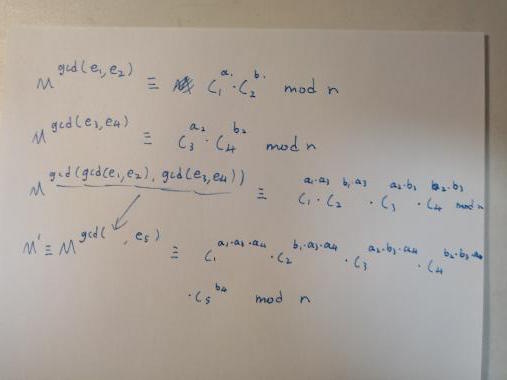 M^gcd(e₁,e₂) ≡ C₁^a₁ · C₂^b₁ mod n
M^gcd(e₃,e₄) ≡ C₃^a₂ · C₄^b₂ mod n
M^gcd(gcd(e₁,e₂), gcd(e₃,e₄)) ≡ C₁^a₁·a₃ · C₂^b₁·a₃ · C₃^a₂·b₃ · C₄^b₂·b₃ mod n
M' ≡ M^gcd( , e₅) ≡ C₁^a₁·a₃·a₄ · C₂^b₁·a₃·a₄ · C₃^a₂·b₃·a₄ · C₄^b₂·b₃·a₄
· C₅^b₄ mod n